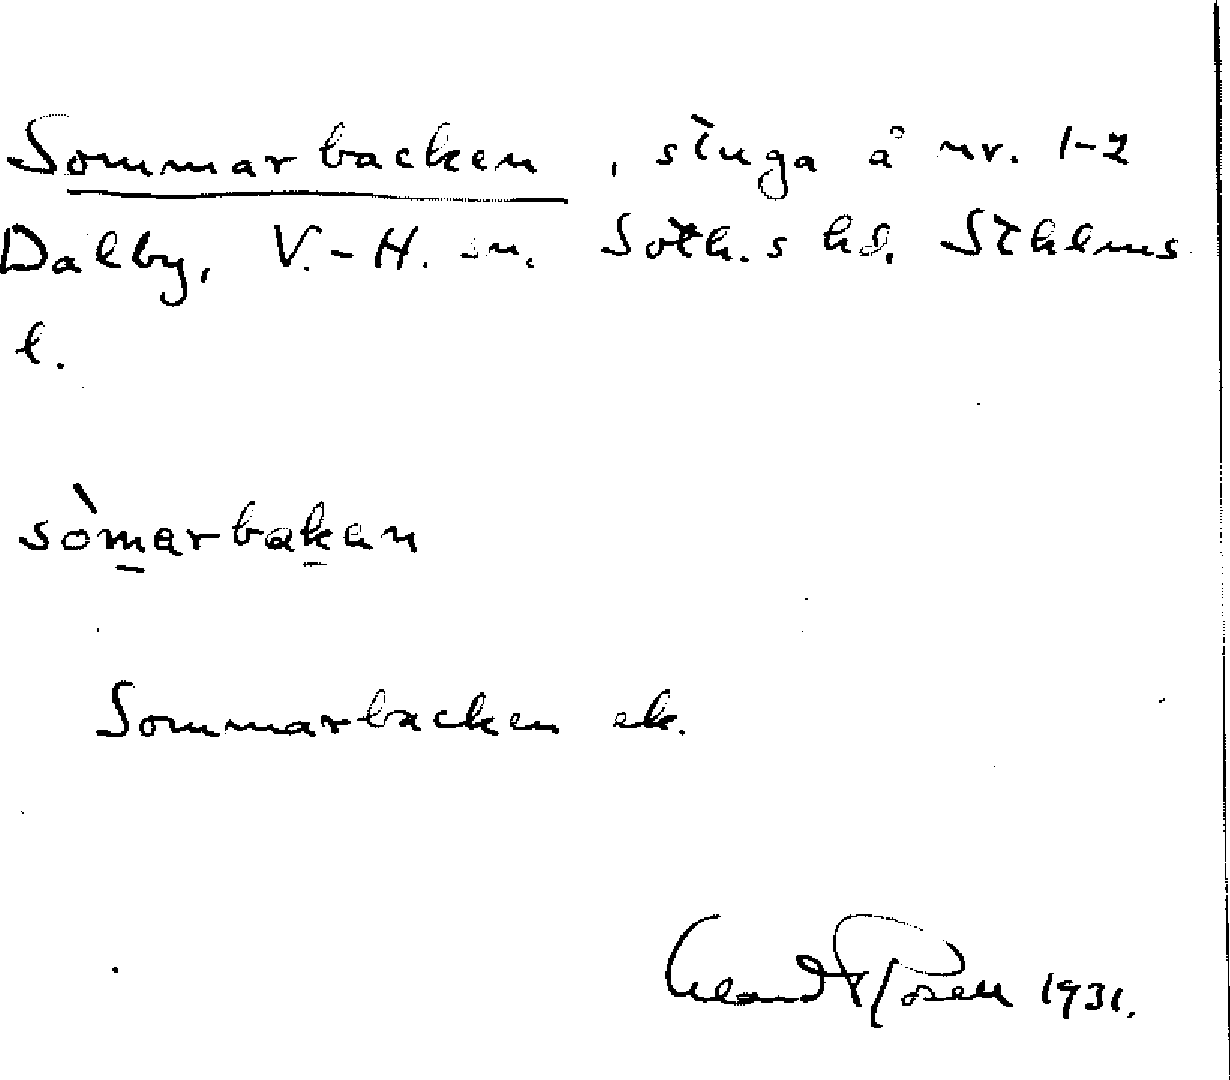 Sommarbacken, stuga å nr. 1-2
Dalby, V.-H. sn. Soth.s hd. Sthlms
l.
sòmarbakan
Sommarbacken ek.
1931.